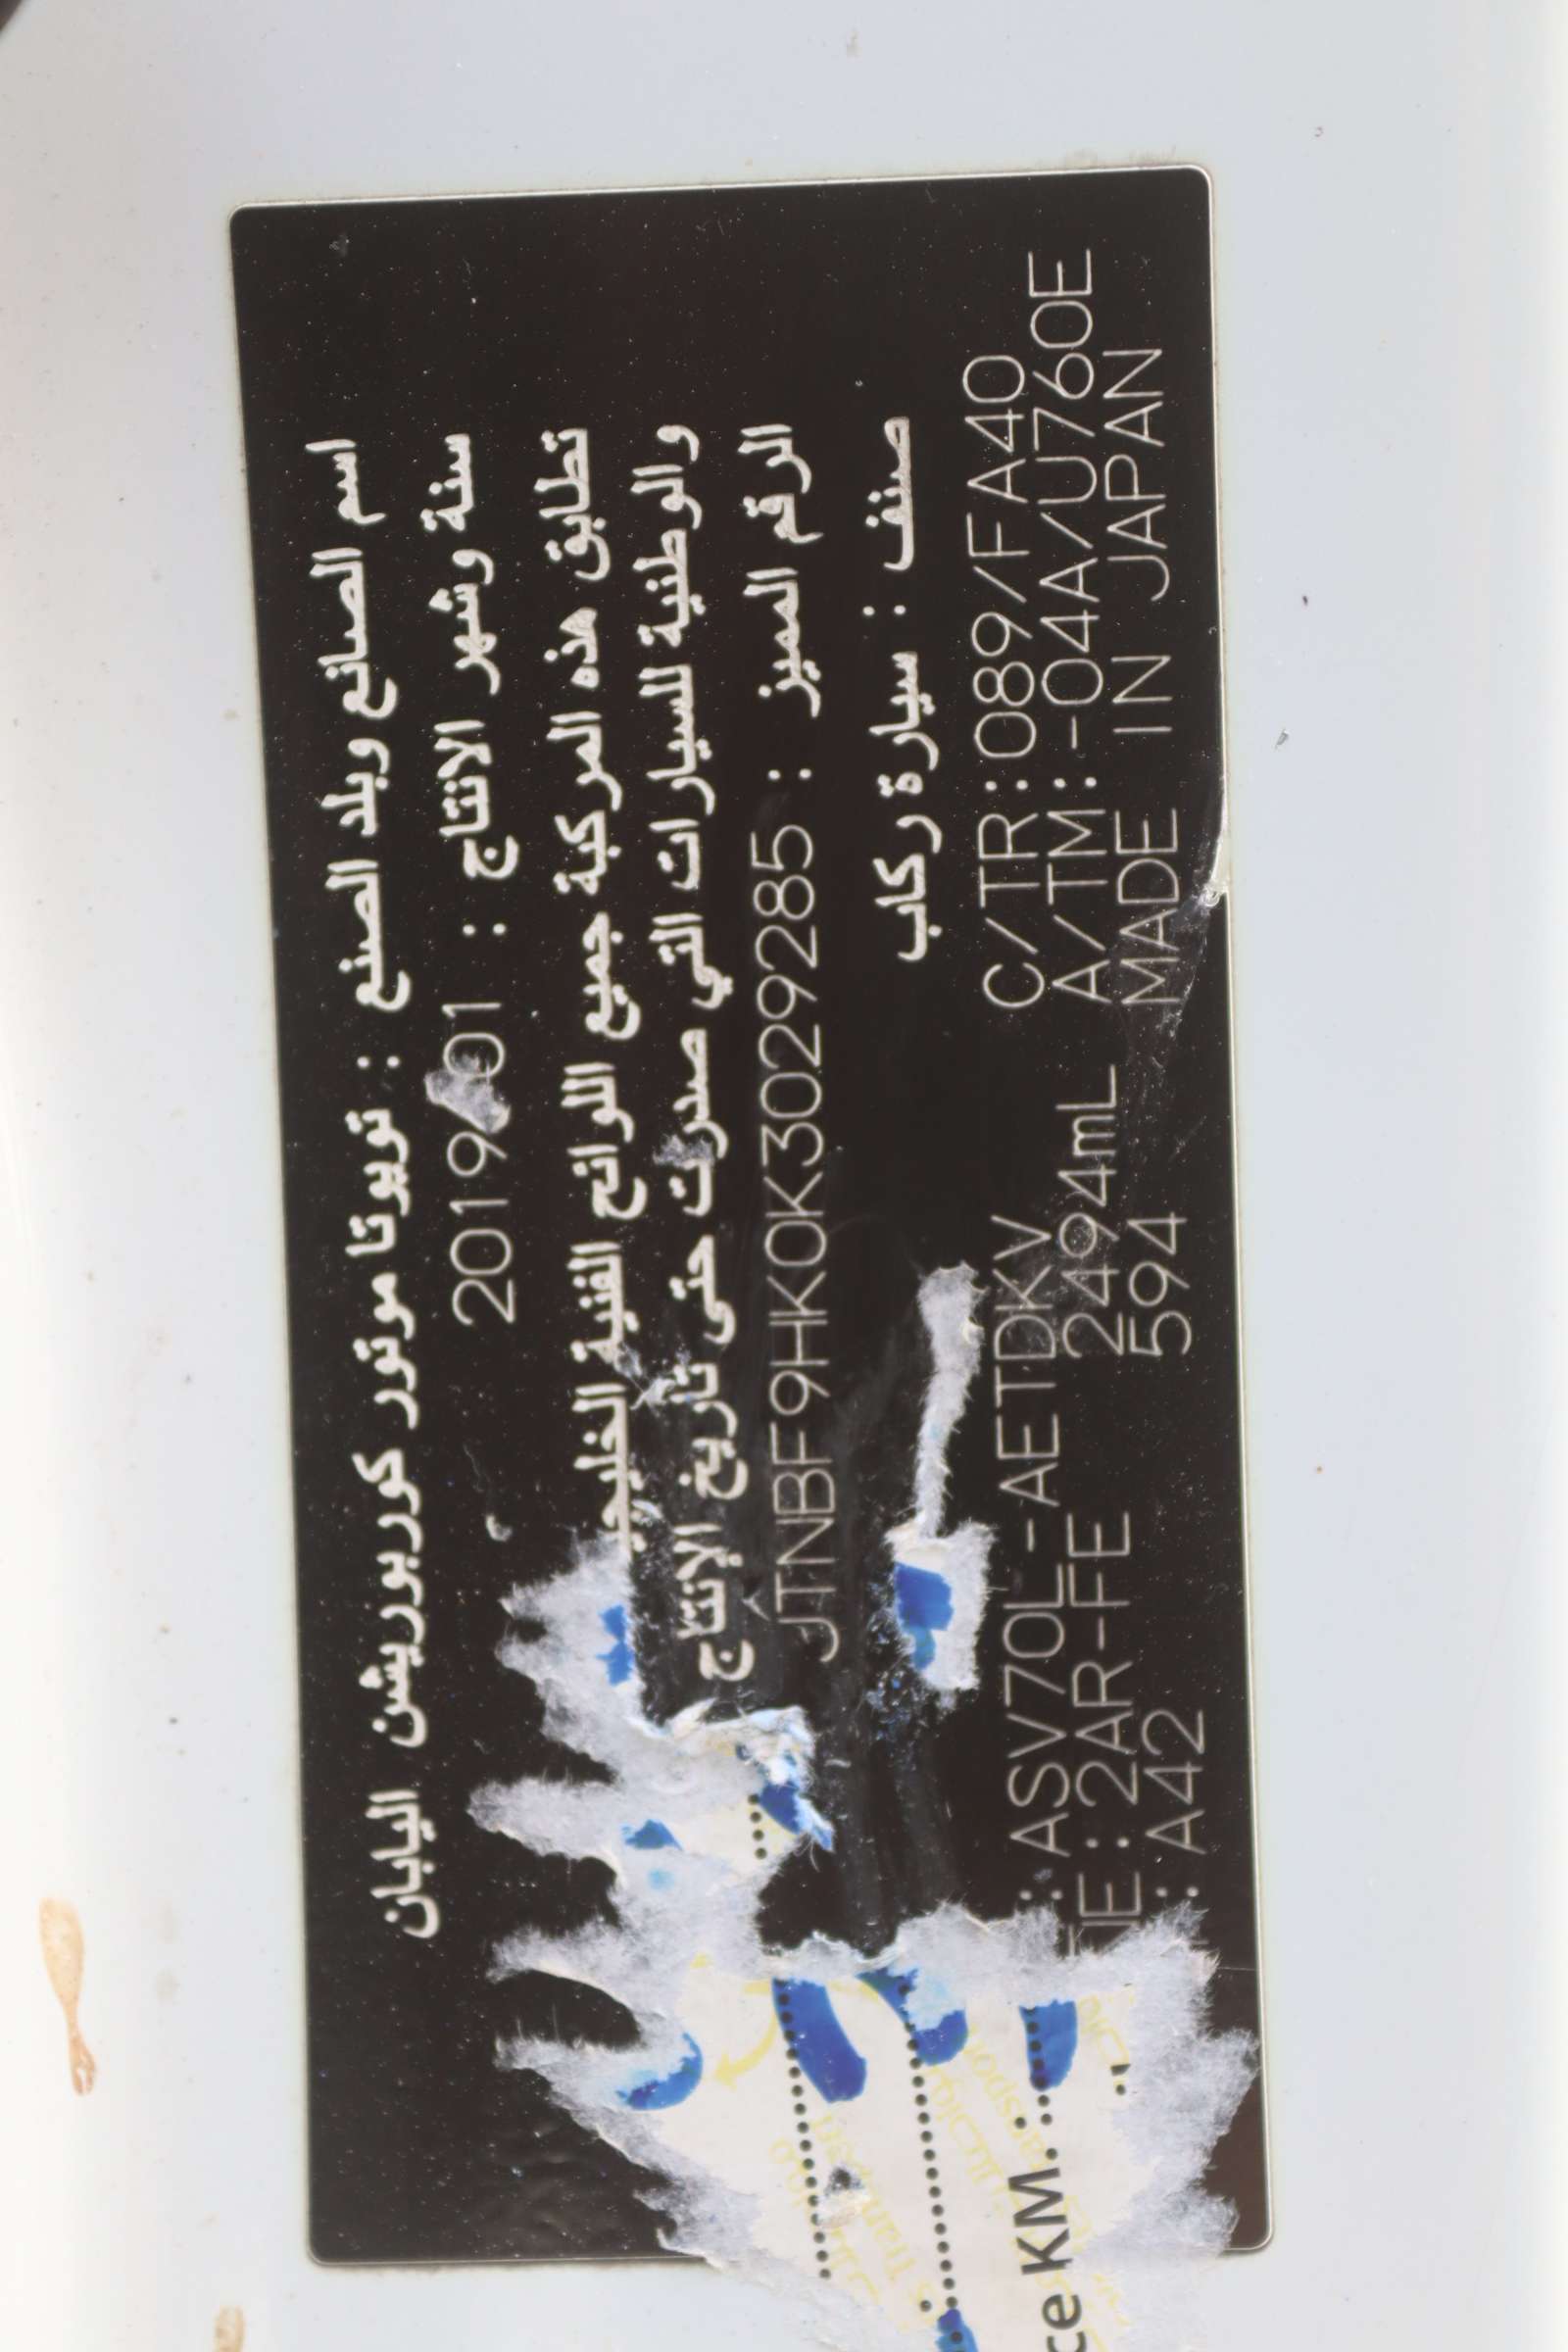 اسم الصانع وبلد الصنع : تويوتا موتور كوربوريشن اليابان
سنة وشهر الانتاج : 2019/01
تطابق هذه المركبة جميع اللوائح الفنية
والوطنية للسيارات التي صدرت حتى تاريخ الإنتاج
الرقم المميز : JTNBF9HK0K3029285
صنف : سيارة ركاب
:ASV70L-AETDKV C/TR:089/FA40
:2AR-FE 2494mL A/TM:-04A/U760E
:A42 594 MADE IN JAPAN
KM.